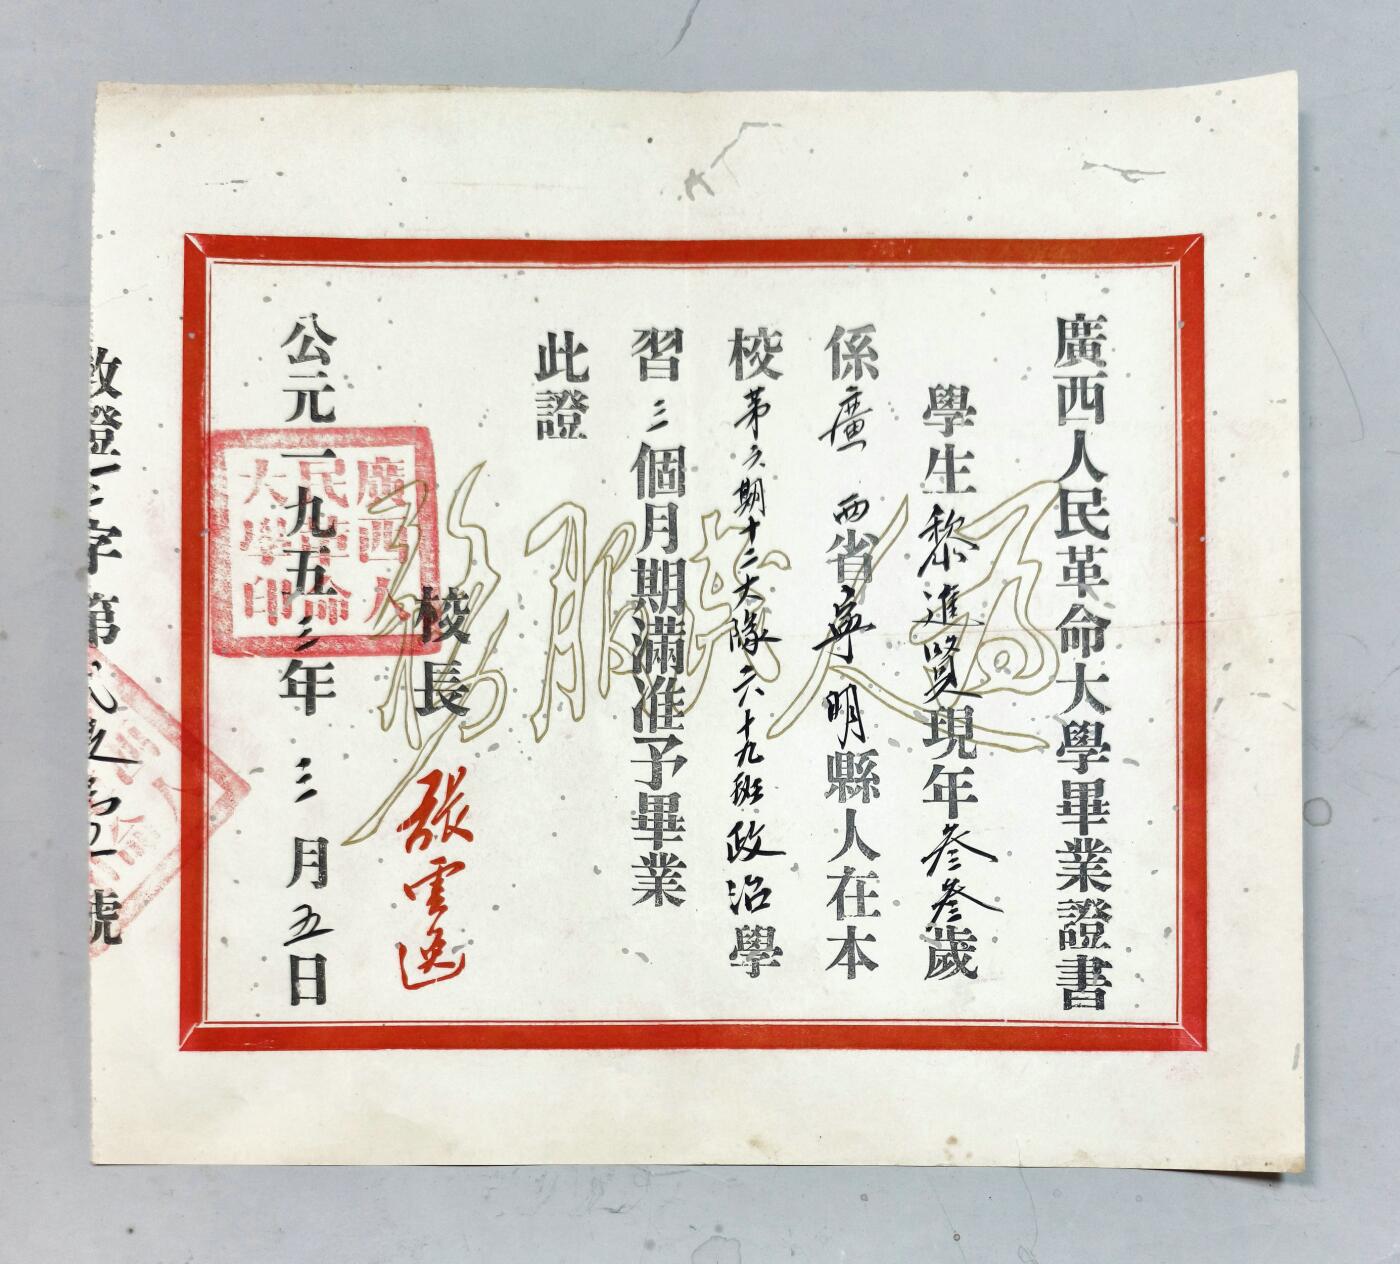 廣西人民革命大學畢業證書
學生黎進賢現年叁叁歲
係廣西省寧明縣人在本
校第六期十二大隊六十九班政治學
習三個月期滿准予畢業
此證
校長 張雲逸
公元一九五三年三月五日
廣西人民革命大學印
為人民服務
教證 字第 號